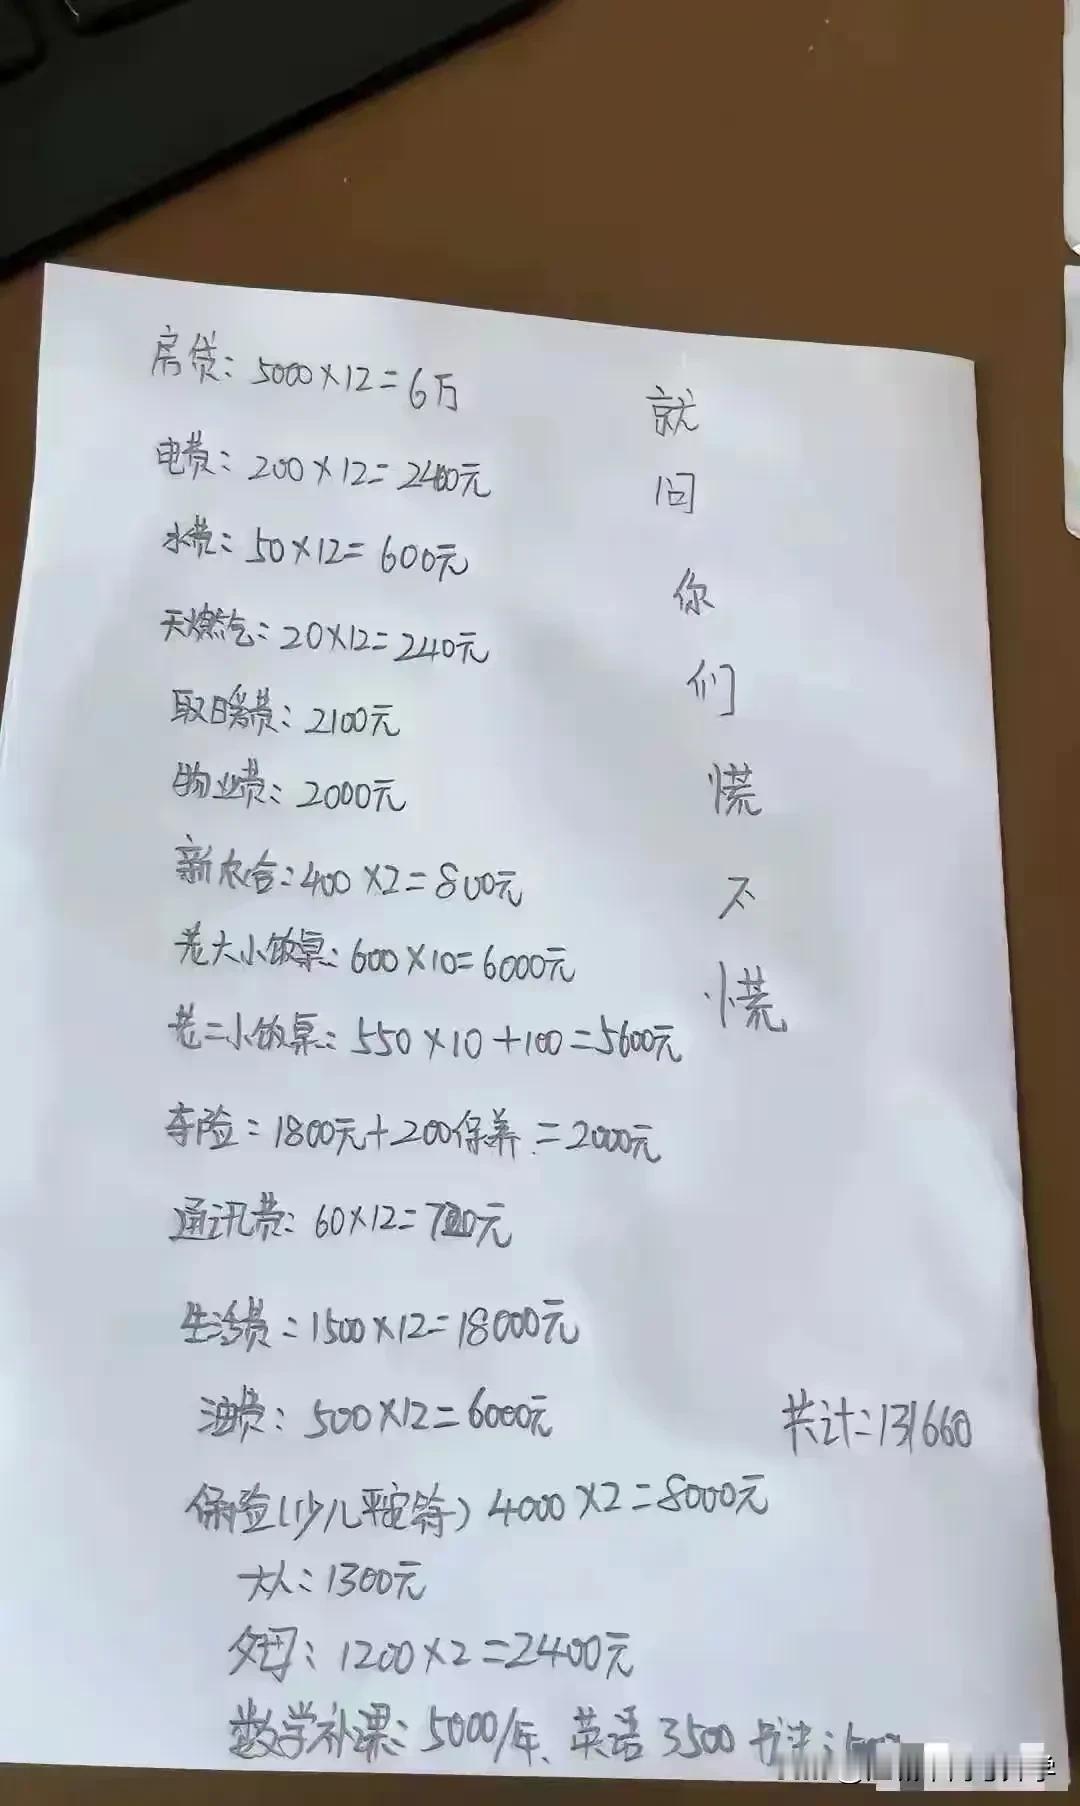 房贷：5000×12=6万
电费：200×12=2400元
水费：50×12=600元
天燃气：20×12=240元
取暖费：2100元
物业费：2000元
新农合：400×2=800元
老大小饭桌：600×10=6000元
老二小饭桌：550×10+100=5600元
车险=1800元+200保养=2000元
通讯费：60×12=720元
生活费=1500×12=18000元
油费：500×12=6000元
保险(少儿平安符) 4000×2=8000元
大人：1300元
父母：1200×2=2400元
数学补课：5000/年、英语3500 书法：
就问你们慌不慌
共计=131660